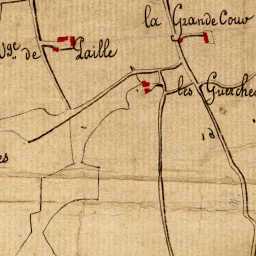 la Grande Cour
Vge de Paille
les Guesches
18
es